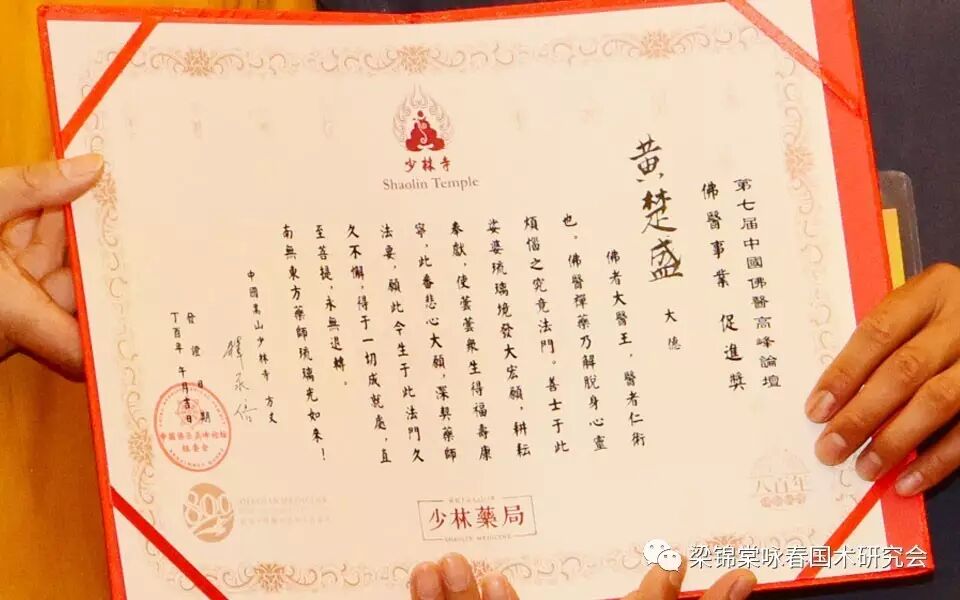 少林寺
Shaolin Temple
第七届中國佛醫高峰論壇
佛醫事業 促進獎
黄楚盛 大德
佛者大醫王，醫者仁術
也。佛醫禪藥乃解脫身心靈
煩惱之究竟法門。善士于此
娑婆琉璃境發大宏願，耕耘
奉獻，使蕓蕓衆生得福壽康
寧，此番悲心大願，深契藥師
法要，願此今生于此法門久
久不懈，得于一切成就處，直
至菩提，永無退轉。
南無東方藥師琉璃光如來！
中國嵩山少林寺 方丈
釋永信
發證日期
丁酉年 午月吉日
中國佛醫高峰论坛
組委会
800
SHAOLIN MEDICINE
少林藥局
SHAOLIN MEDICINE
八百年
梁锦棠咏春国术研究会